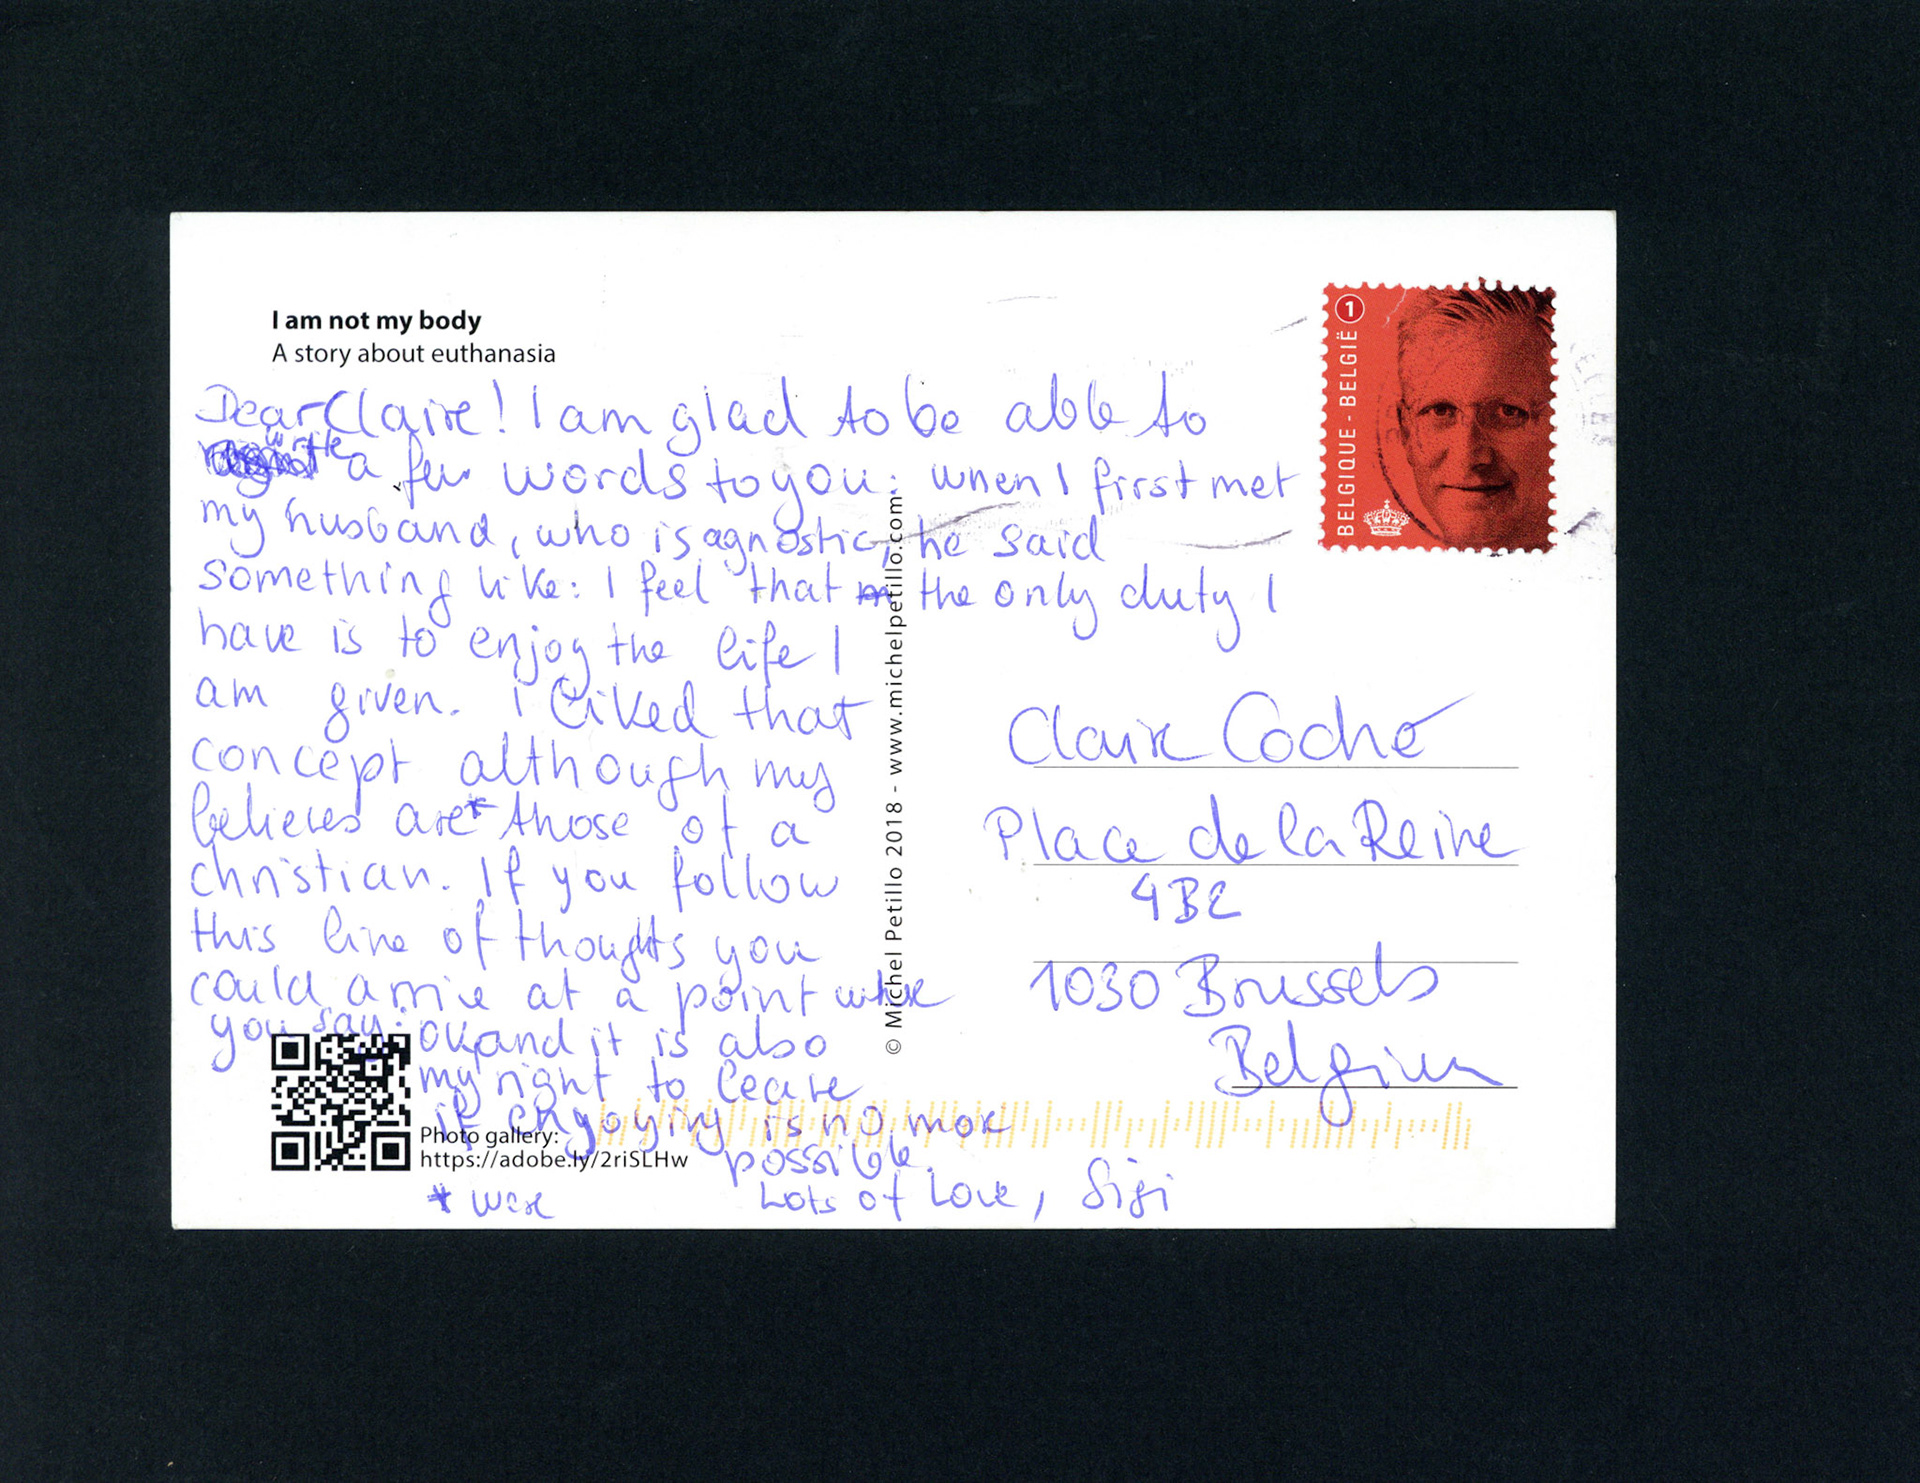 I am not my body
A story about euthanasia
Dear Claire! I am glad to be able to
write a few words to you: when I first met
my husband, who is agnostic, he said
something like: I feel that the only duty I
have is to enjoy the life I
am given. I liked that
concept although my
believes are* those of a
christian. If you follow
this line of thoughts you
could arrive at a point where
you say: ok, and it is also
my right to leave
if engyoying is no more
possible.
* were
Lots of Love, Sigi
Photo gallery:
https://adobe.ly/2riSLHw
© Michel Petillo 2018 - www.michelpetillo.com
1
BELGIQUE - BELGIË
Claire Coché
Place de la Reine
4BE
1030 Brussels
Belgium